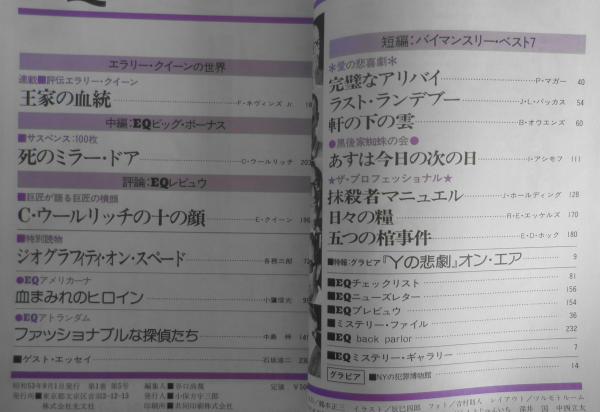 エラリー・クイーンの世界
連載■評伝エラリー・クイーン
王家の血統 F・ネヴィンズ Jr.
中編:EQビッグ・ボーナス
■サスペンス:100枚
死のミラー・ドア C・ウールリッチ
評論:EQレビュウ
■巨匠が語る巨匠の横顔
C・ウールリッチの十の顔 E・クイーン
■特別読物
ジオグラフィティ・オン・スペード 各務三郎
●EQアメリカーナ
血まみれのヒロイン 小鷹信光
●EQアトランダム
ファッショナブルな探偵たち 中島
■ゲスト・エッセイ 石坂浩二
昭和53年9月1日発行 第1巻 第5号 編集人■谷口尚規 定価
発行所■東京都文京区音羽2-12-13 発行人■小保方宇三郎
株式会社光文社 印刷所■共同印刷株式会社
短編:バイマンスリー・ベスト7
＊愛の悲喜劇＊
完璧なアリバイ P・マガー 40
ラスト・ランデブー J・L・バッカス 54
軒の下の雲 B・オウエンズ 60
●黒後家蜘蛛の会●
あすは今日の次の日 I・アシモフ 111
★ザ・プロフェッショナル★
抹殺者マニュエル J・ホールディング 128
日々の糧 R・E・エッケルズ 170
五つの棺事件 E・D・ホック 180
■特報:グラビア『Yの悲劇』オン・エア 9
■EQチェックリスト 81
■EQニューズレター 156
■EQプレビュウ 154
■ミステリー・ファイル 36
■EQ back parlor 232
■EQミステリー・ギャラリー 7
グラビア ■NYの犯罪博物館 14